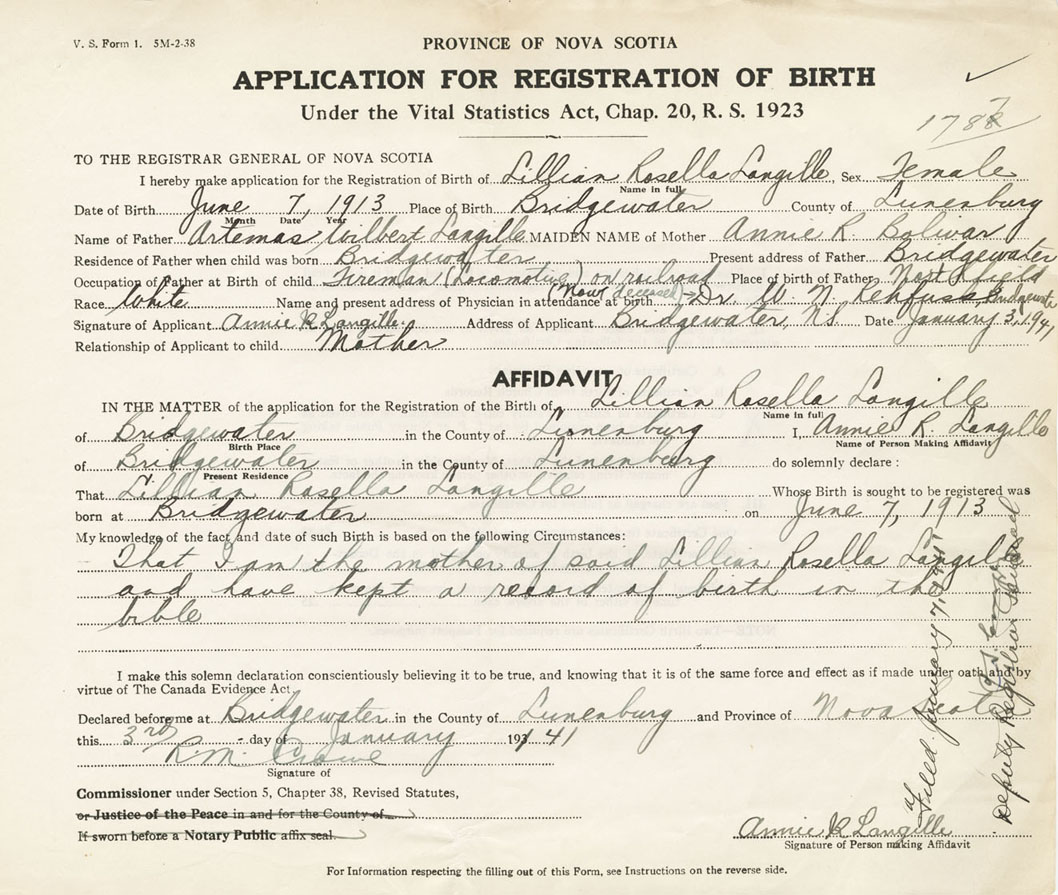 V. S. Form 1. 5M-2-38
PROVINCE OF NOVA SCOTIA
APPLICATION FOR REGISTRATION OF BIRTH
Under the Vital Statistics Act, Chap. 20, R. S. 1923
TO THE REGISTRAR GENERAL OF NOVA SCOTIA
I hereby make application for the Registration of Birth of Lillian Rosella Langille, Sex Female
Name in full
Date of Birth June 7, 1913 Place of Birth Bridgewater County of Lunenburg
Month Date Year
Name of Father Artemas Wilbert Langille MAIDEN NAME of Mother Annie R Bolivar
Residence of Father when child was born Bridgewater Present address of Father Bridgewater
Occupation of Father at Birth of child Fireman (Locomotive) on railroad Place of birth of Father
Race White Name and present address of Physician in attendance at birth (Now deceased) Dr. W. N. Rehfuss Bridgewater
Signature of Applicant Annie R Langille Address of Applicant Bridgewater, N.S. Date January 3, 194
Relationship of Applicant to child Mother
AFFIDAVIT
IN THE MATTER of the application for the Registration of the Birth of Lillian Rosella Langille
Name in full
of Bridgewater in the County of Lunenburg I, Annie R. Langille
Birth Place Name of Person Making Affidavit
of Bridgewater in the County of Lunenburg do solemnly declare:
Present Residence
That Lillian Rosella Langille Whose Birth is sought to be registered was
born at Bridgewater on June 7, 1913
My knowledge of the fact and date of such Birth is based on the following Circumstances:
That I am the mother of said Lillian Rosella Langille
and have kept a record of birth in the
bible
I make this solemn declaration conscientiously believing it to be true, and knowing that it is of the same force and effect as if made under oath and by
virtue of The Canada Evidence Act
Declared before me at Bridgewater in the County of Lunenburg and Province of Nova Scotia
this 3rd day of January 1941
R.M. Crowe
Signature of
Commissioner under Section 5, Chapter 38, Revised Statutes,
or Justice of the Peace in and for the County of
If sworn before a Notary Public affix seal.
Annie R Langille
Signature of Person making Affidavit
For Information respecting the filling out of this Form, see Instructions on the reverse side.
Filed January 7,
Deputy Registrar General